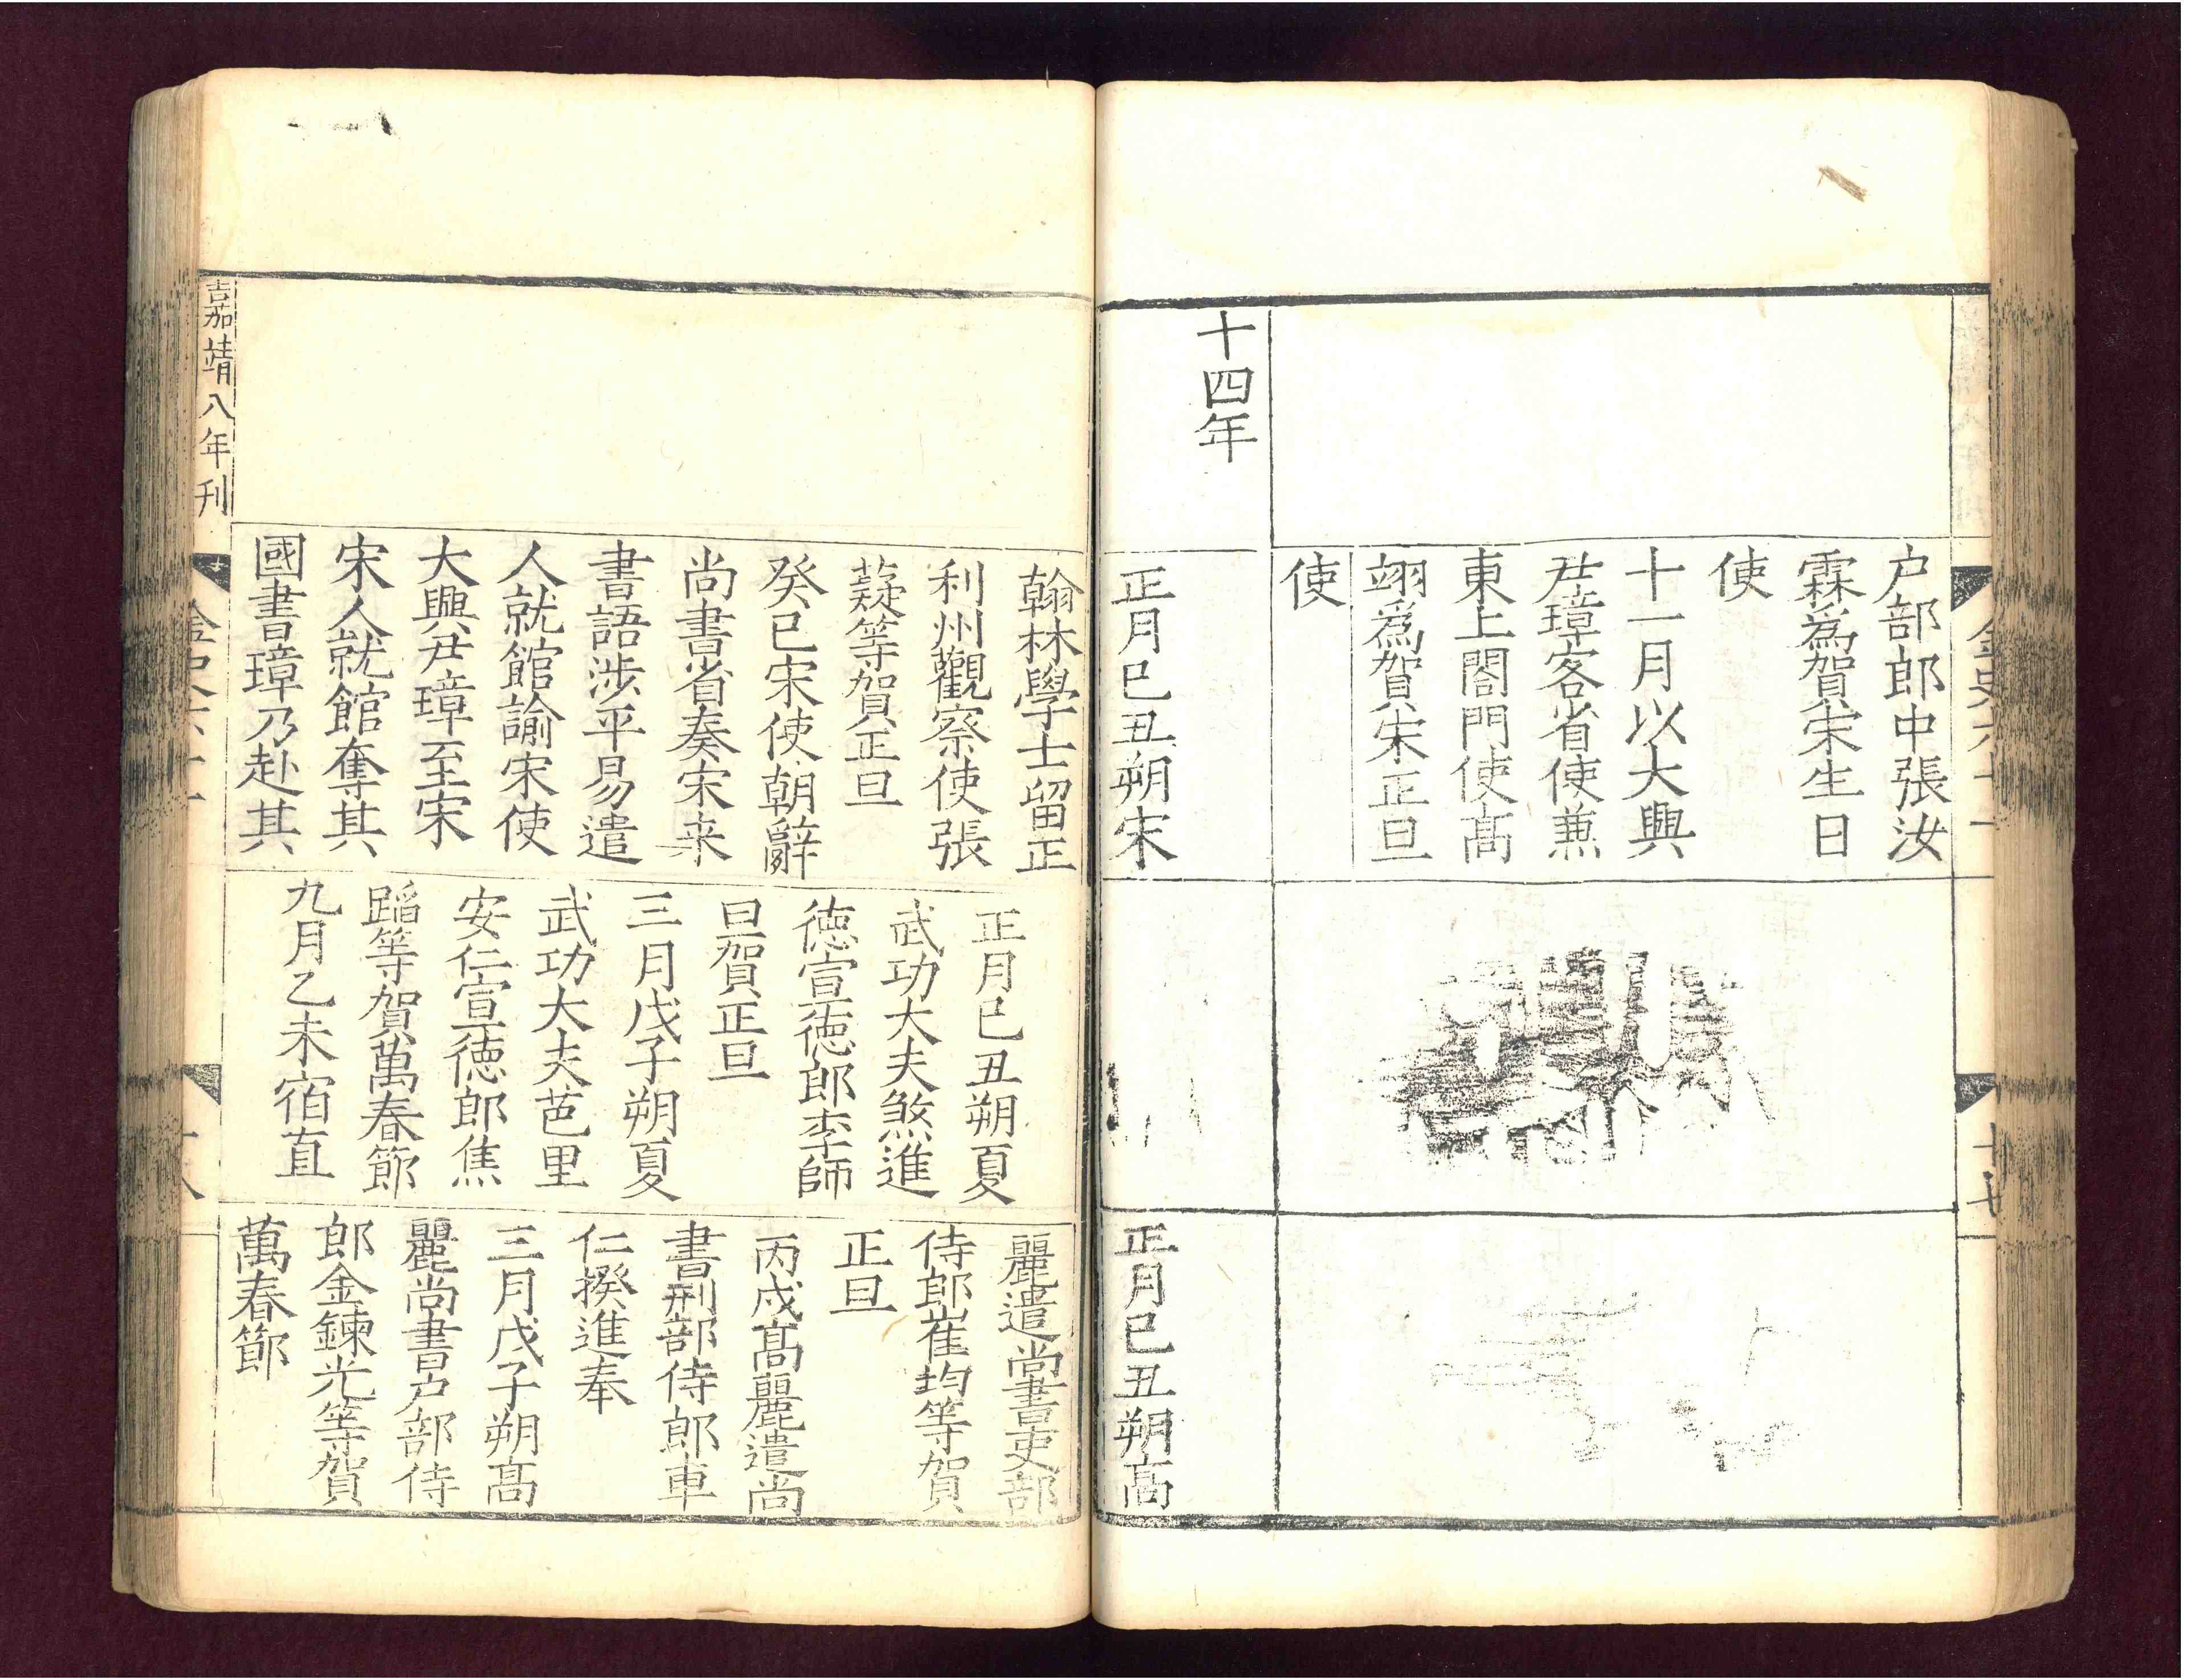 戶部郎中張汝
霖爲賀宋生日
使
十一月以大興
尹璋客省使兼
東上閤門使高
翊爲賀宋正旦
使
十四年
正月己丑朔宋
正月己丑朔高
翰林學士留正
利州觀察使張
薿等賀正旦
癸巳宋使朝辭
尚書省奏宋来
書語涉平易遣
人就館諭宋使
大興尹璋至宋
宋人就館奪其
國書璋乃赴其
正月己丑朔夏
武功大夫煞進
德宣德郎李師
旦賀正旦
三月戊子朔夏
武功大夫芭里
安仁宣德郎焦
蹈等賀萬春節
九月乙未宿直
麗遣尚書吏部
侍郎崔均等賀
正旦
丙戌高麗遣尚
書刑部侍郎車
仁揆進奉
三月戊子朔高
麗尚書戶部侍
郎金鍊光等賀
萬春節
嘉靖八年刊